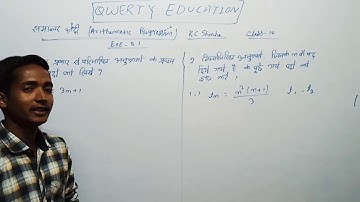 QWERTY EDUCATION
समान्तर श्रेढ़ी (Arithmetic Progression) K.C Sharma Class-10
Exe-5.1
प्रकार से परिभाषित अनुक्रमों के प्रथम
पदों को लिखें ?
3n+1
2 निम्नलिखित अनुक्रमों जिनके n वाँ पद
दिये गये हैं के पूछे गये पदों को
ज्ञात करें।
(i) tₙ = n²(n+1)/3 t₁,